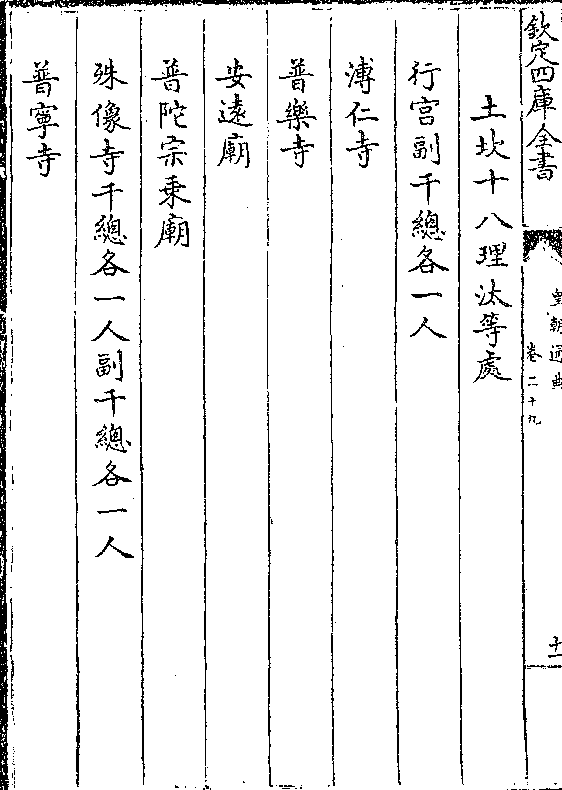 欽定四庫全書
皇朝通典
卷二十九
十一
土坎十八理汰等處
行宮副千總各一人
溥仁寺
普樂寺
安遠廟
普陀宗乘廟
殊像寺千總各一人副千總各一人
普寧寺